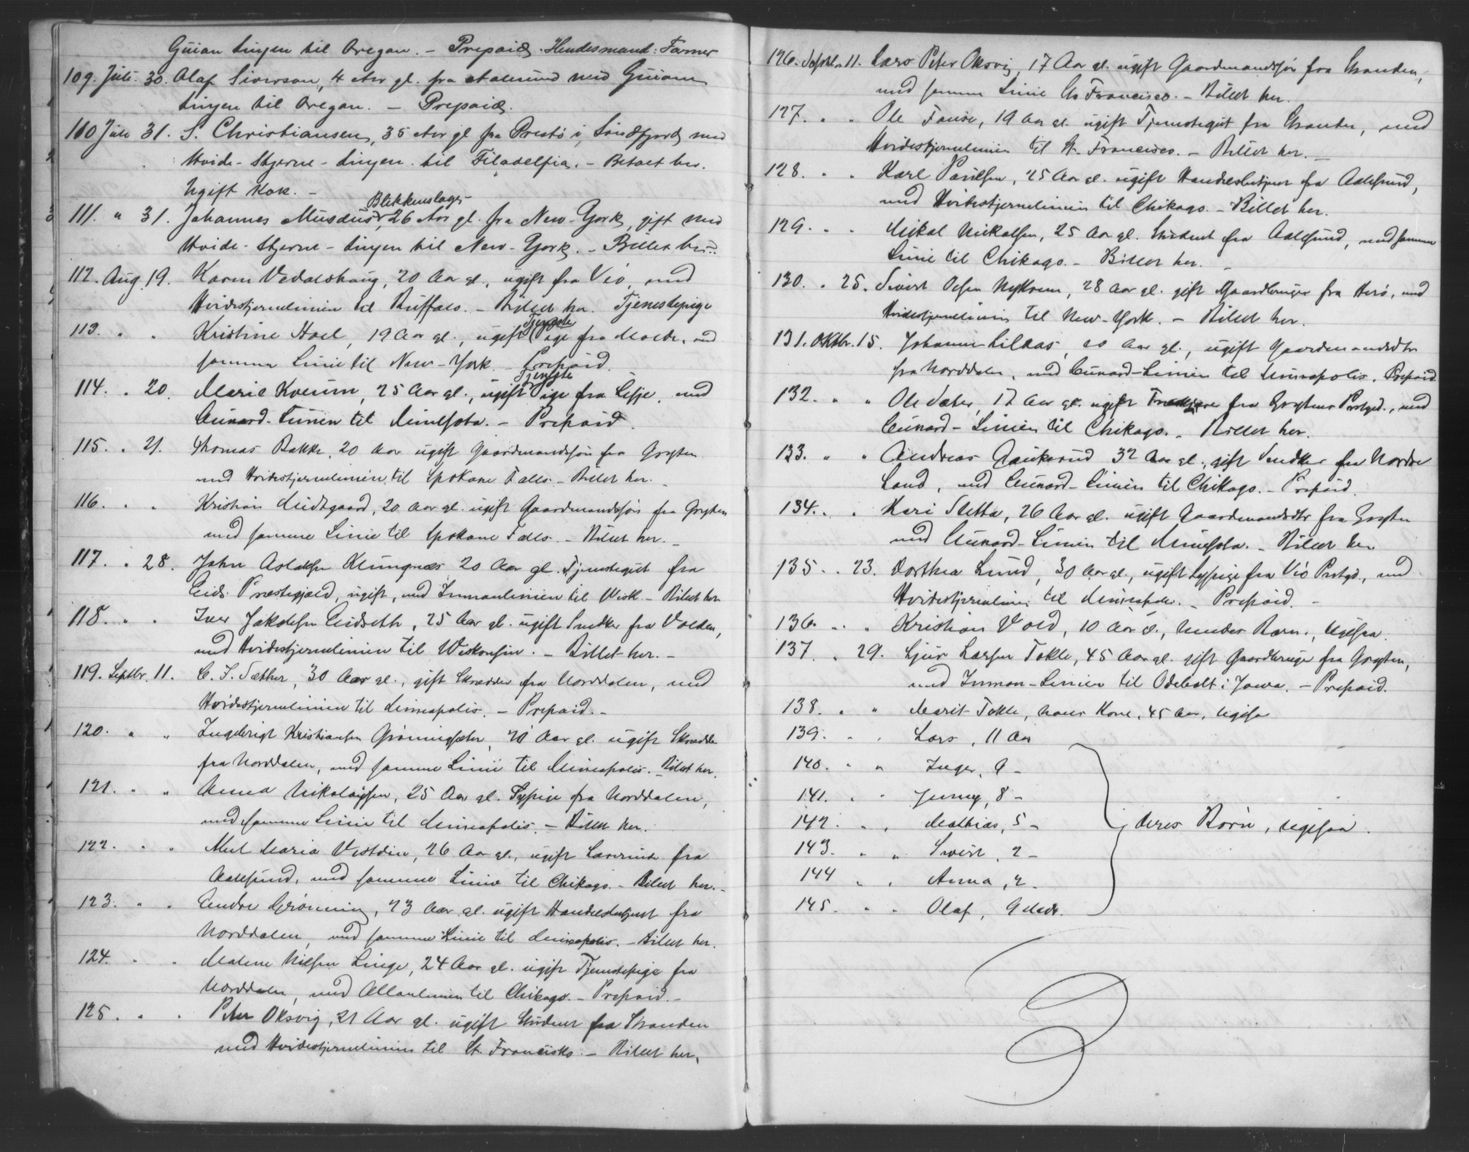 Guion Linjen til Oregon. - Prepaid. Hendes mand: Farmer
109. Juli 30. Olaf Siverson, 4 Aar gl. fra Aalesund med Guion
Linjen til Oregon. - Prepaid.
110 Juli 31. S. Christiansen, 35 Aar gl. fra Presto i Söndfjord med
Hvide-Stjerne-Linjen til Filadelfia. - Betalt her.
Ugift Kok. -
Blikkenslager
111. " 31. Johannes Musæus, 26 Aar gl. fra New-York, gift med
Hvide-Stjerne-Linjen til New-York. - Billet her.
112. Aug. 19. Karen Vedalshaug, 20 Aar gl., ugift fra Vió, med
Hvidestjernelinien til Buffalo. - Billet her. Tjenestepige
113. " " Kristine Hoel, 19 Aar gl., ugift Pige fra Molde, med
samme Linie til New-York. Prepaid.
Tjeneste
114. " 20. Marie Kverum, 25 Aar gl., ugift Pige fra Lesje, med
Cunard-Linien til Minesota. - Prepaid.
115. " 21. Thomas Bakke, 20 Aar ugift Gaardmandssøn fra Gryten
med Hvidestjernelinien til Spokane Falls. - Billet her. -
116. " " Kristian Midtgaard, 20 Aar gl. ugift Gaardmandssøn fra Gryten
med samme Linie til Spokane Falls. - Billet her. -
117. " 28. John Aslaksen Klungnæs 20 Aar gl. Tjenestegut fra
Eids Præstegjæld, ugift, med Inmanlinien til Wisk - Billet her
118. " " Iver Jakobsen Eidseth, 25 Aar gl. ugift Snedker fra Volden,
med Hvidestjernelinien til Wiskonsin. - Billet her. -
119. Septbr. 11. C. S. Sæther, 30 Aar gl., gift Skrædder fra Norddalen, med
Hvidestjernelinien til Mineapolis. - Prepaid. -
120. " " Ingebrigt Kristiansen Grønningsæter, 20 Aar gl. ugift Skrædder
fra Norddalen, med samme Linie til Mineapolis. - Billet her.
121. " " Anna Nikolaysen, 25 Aar gl. Sypige fra Norddalen,
med samme Linie til Mineapolis. - Billet her.
122. " " Maria Vestdin, 26 Aar gl., ugift Lærerinde fra
Aalesund, med samme Linie til Chikago. - Billet her. -
123. " " Endre Grønning, 23 Aar gl. ugift Handelsbetjent fra
Norddalen, med samme Linie til Mineapolis. - Billet her.
124. " " Malene Nilsen Linge, 24 Aar gl. ugift Tjenestepige fra
Norddalen, med Allanlinien til Chikago. - Prepaid. -
125. " " Peter Oksvig, 21 Aar gl. ugift Student fra Stranden
med Hvidestjernelinien til St. Francisko. - Billet her.
126. Septbr. 11. Lars Peter Oksvig, 17 Aar gl. ugift Gaardmandssøn fra Stranden,
med samme Linie St. Francisco. - Billet her.
127. " " Ole 19 Aar gl. ugift Tjenestegut fra Stranden, med
Hvidestjernelinien til St. Francisco. - Billet her. -
128. " " Karl Paulsen, 25 Aar gl. ugift Handelsbetjent fra Aalesund,
med Hvidestjernelinien til Chikago. - Billet her.
129. " " Mikal Mikalsen, 25 Aar gl. Student fra Aalesund, med samme
Linie til Chikago. - Billet her. -
130. " 25. Sivert Olsen Myklevem, 28 Aar gl. gift Gaardbruger fra Herö, med
Hvidestjernelinien til New-York. - Billet her.
131. Oktbr. 15. Johanne Lillaas, 20 Aar gl., ugift Gaardmandsdtr
fra Norddalen, med Cunard-Linien til Mineapolis. Prepaid
132. " " Ole Sæter, 17 Aar gl. ugift fra Grytens Prstgd., med
Cunard-Linien til Chikago. - Billet her.
133. " " Andreas Gauksund 32 Aar gl., gift Snedker fra Nordre
Land, med Cunard-Linien til Chikago. - Prepaid.
134. " " Kari Sletta, 26 Aar gl. ugift Gaardmandsdtr fra Gryten
med Cunard-Linien til Minesota. - Billet her
135. " 23. Dorthea Lund, 30 Aar gl., ugift Sypige fra Vió Prstgd., med
Hvidestjernelinien til Mineapolis. - Prepaid. -
136. " " Kristian Vold, 10 Aar gl., hendes Barn, ligesaa.
137 " 29. Sjur Larsen Tokle, 45 Aar gl. gift Gaardbruger fra Gryten,
med Inman-Linien til Odebolt i Jowa. - Prepaid.
138. " " Marit Tokle, hans Kone, 45 Aar, ligesaa
139. " " Lars, 11 Aar
140. " " Inger, 9 -
141. " " Jenny, 8 -
142. " " Mathias, 5 - deres Børn, ligesaa.
143. " " Sivert, 2 -
144 " " Anna, 2 -
145. " " Olaf, 9 Mdr.